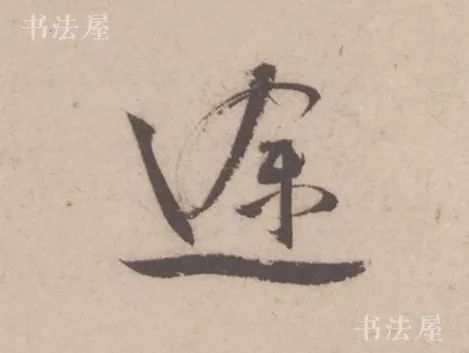 书法屋
途
书法屋